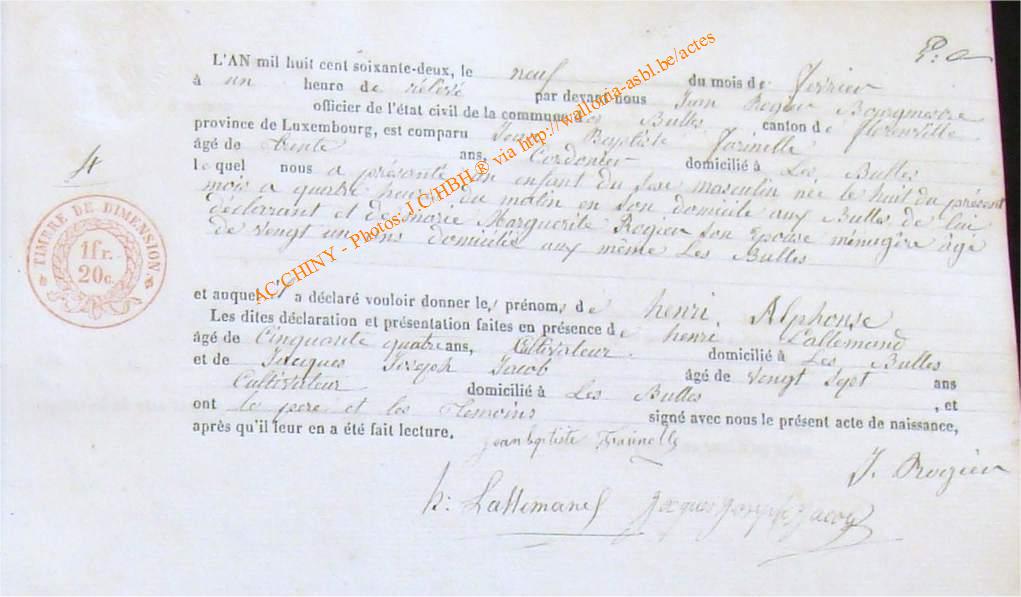 P: a
L'AN mil huit cent soixante-deux, le neuf du mois de fevrier
à un heure de rélevé par devant nous Jean Rogier Bourgmestre
officier de l'état civil de la commune des Bulles canton de florenville
province de Luxembourg, est comparu Jean Baptiste
âgé de trente ans, Cordonier domicilié à Les Bulles
lequel nous a présenté un enfant du sexe masculin née le huit du présent
mois a quatre heures du matin en son domicile aux Bulles de lui
déclarrant et de marie Marguerite Rogier son Epouse ménagère âgé
de vingt un ans domicilié aux même Les Bulles
4
TIMBRE DE DIMENSION
1fr.
20c.
et auquel il a déclaré vouloir donner les prénoms de henri Alphonse
Les dites déclaration et présentation faites en présence de henri Lallemand
âgé de Cinquante quatre ans, Cultivateur domicilié à Les Bulles
et de Jacques Joseph Jacob âgé de vengt sept ans
Cultivateur domicilié à Les Bulles , et
ont le pere et les Temoins signé avec nous le présent acte de naissance,
après qu'il leur en a été fait lecture.
jean baptiste
J. Rogier
h: Lallemand jacques joseph jacob
AC CHINY - Photos: J.C/HBH ® via http://wallonia-asbl.be/actes